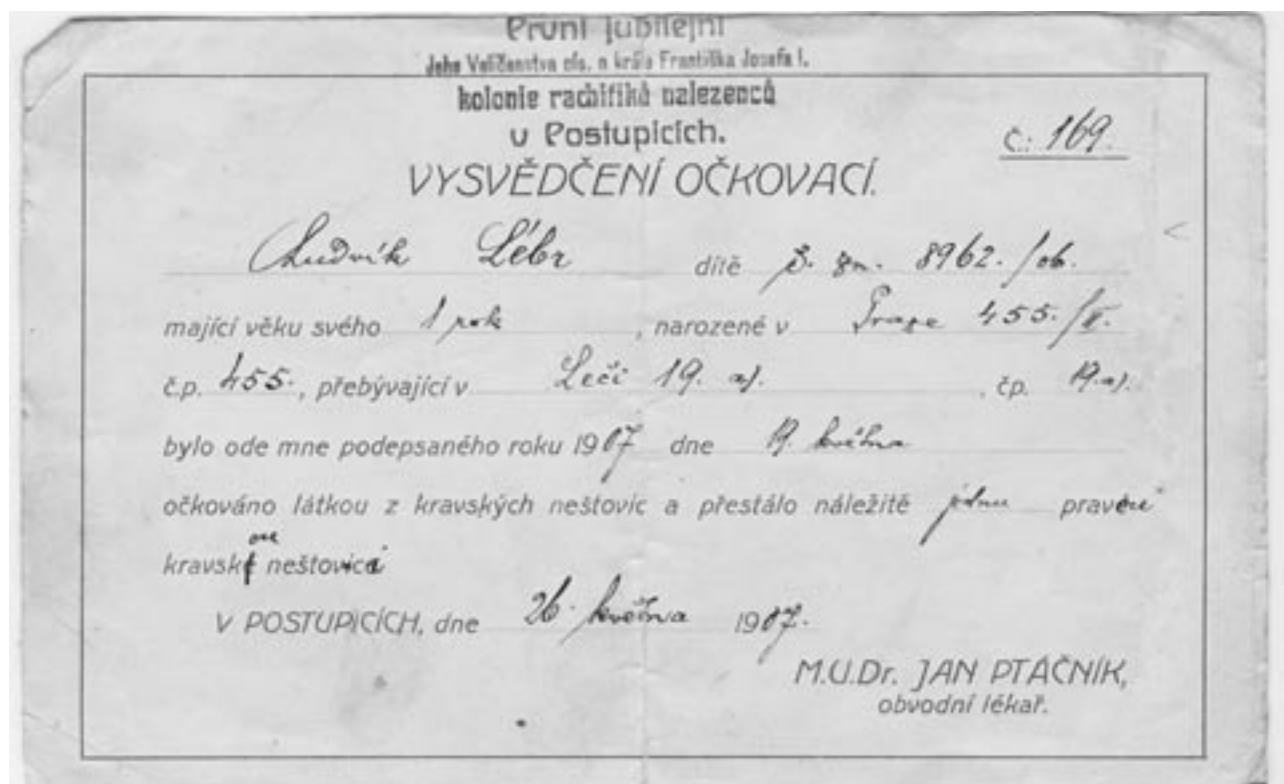 První jubilejní
Jeho Veličenstva cís. a krále Františka Josefa I.
kolonie rachitiků nalezenců
v Postupicích.
č: 169.
VYSVĚDČENÍ OČKOVACÍ.
Ludvík Lébr dítě 8962./ob.
mající věku svého 1 rok, narozené v Praze 455./II.
č.p. 455., přebývající v Leči 19. a)., čp. 19.a)
bylo ode mne podepsaného roku 1907 dne 19. května
očkováno látkou z kravských neštovic a přestálo náležitě jednu pravou
kravskou neštovici
V POSTUPICÍCH, dne 26. května 1907.
M.U.Dr. JAN PTÁČNÍK,
obvodní lékař.